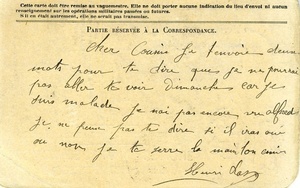 Cette carte doit être remise au vaguemestre. Elle ne doit porter aucune indication du lieu d'envoi ni aucun
renseignement sur les opérations militaires passées ou futures.
S'il en était autrement, elle ne serait pas transmise.
PARTIE RÉSERVÉE À LA CORRESPONDANCE.
Cher Cousin Je t'envoie deux
mots pour te dire que je ne pourrai
pas aller te voir Dimanche car je
suis malade je nai pas encore vu alfred
je ne peux pas te dire si il iras ou
ou non je te serre la main ton cousin
Henri